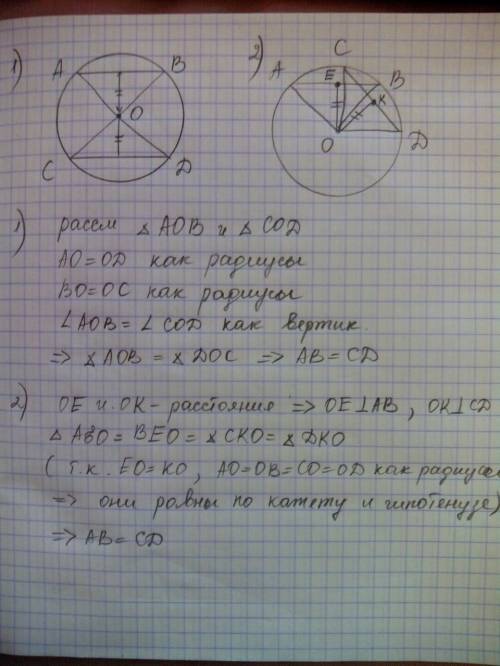 1)
A
B
O
C
D
2)
C
A
E
B
K
O
D
1) рассм △ AOB и △ COD
AO=OD как радиусы
BO=OC как радиусы
∠AOB=∠COD как вертик.
=> △AOB = △DOC => AB=CD
2) OE и OK - расстояния => OE⊥AB, OK⊥CD
△ AEO = BEO = △CKO = △DKO
(т.к. EO=KO, AO=OB=CO=OD как радиусы
=> они равны по катету и гипотенузе)
=> AB=CD